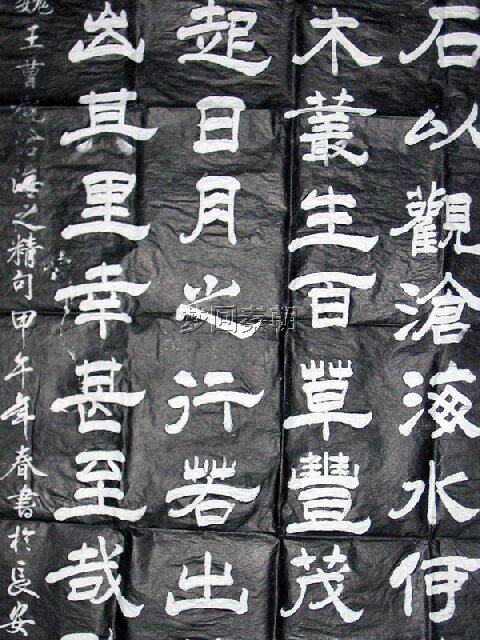 石以觀滄海水何
木叢生百草豐茂
起日月之行若出
出其里幸甚至哉
魏王曹觀滄海之精句甲午年春書於長安
梦回秦朝